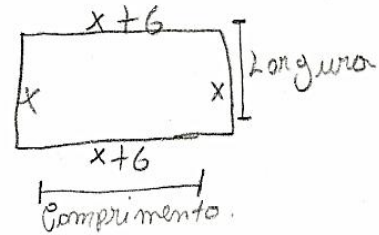 x+6
Largura
x
x
x+6
Comprimento.